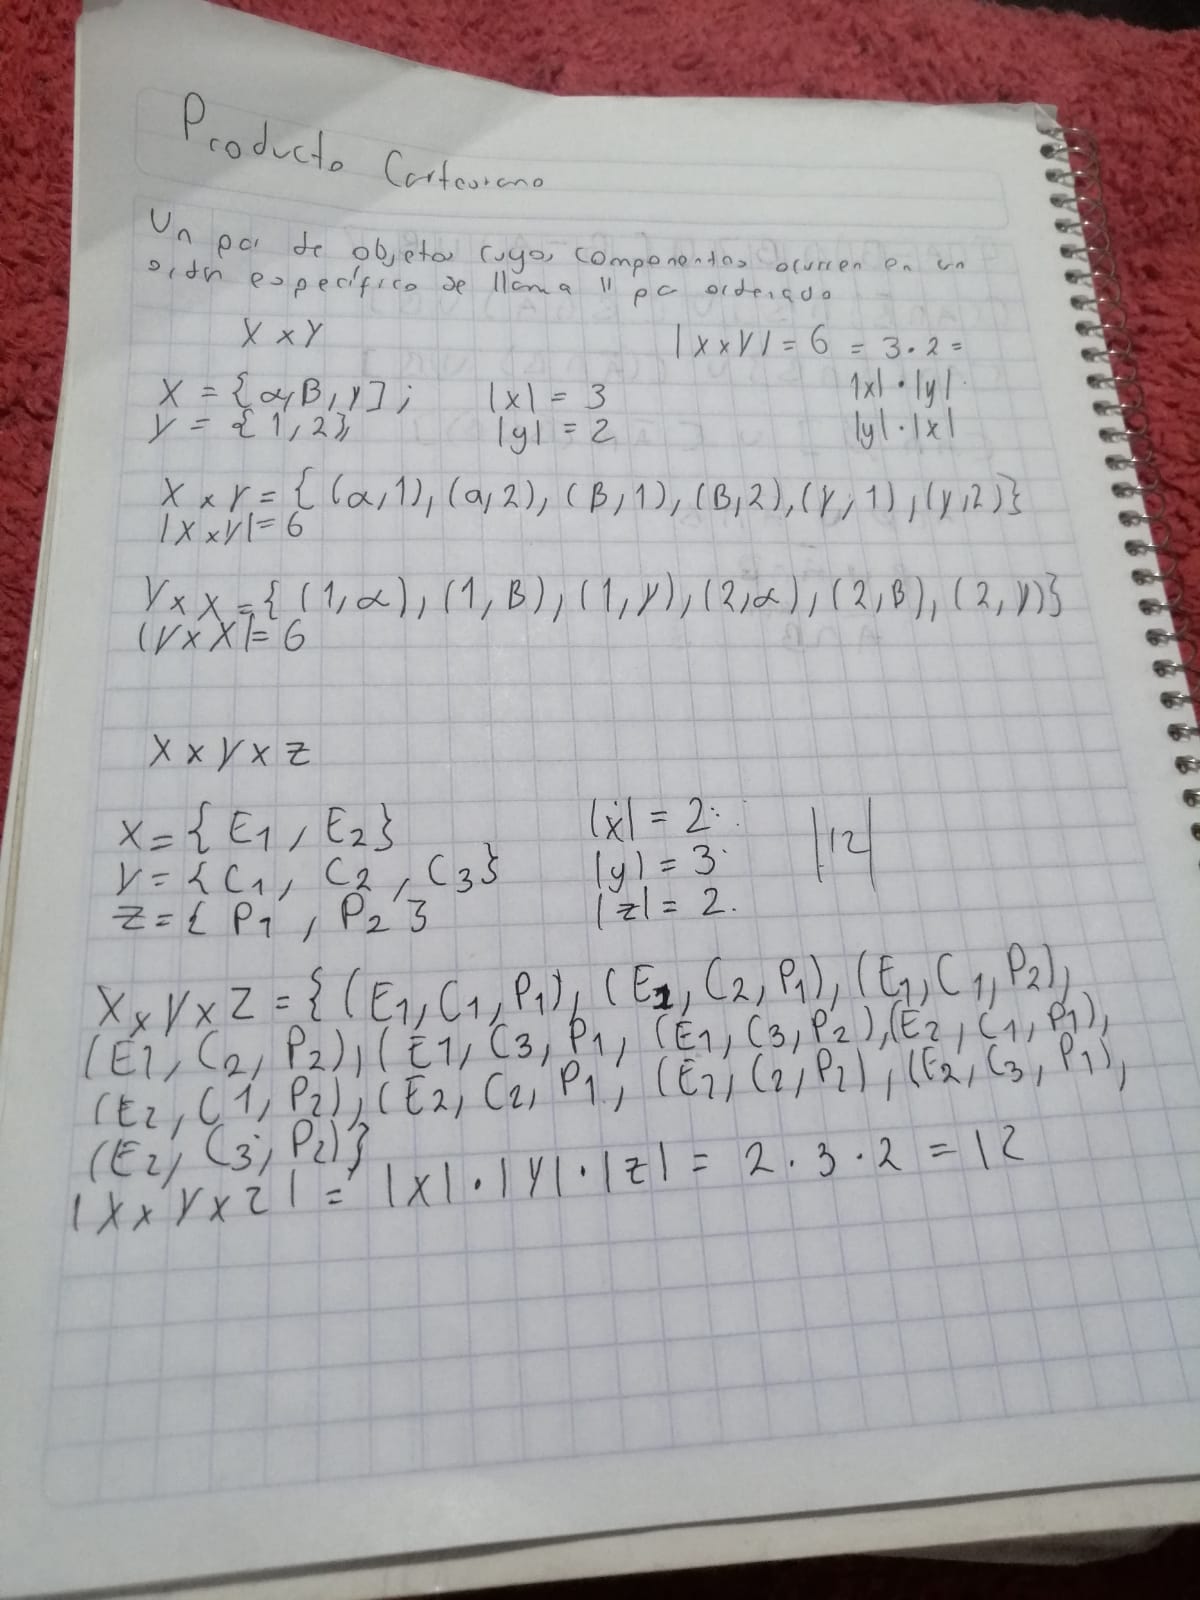 Producto Cartesiano
Un par de objetos cuyos componentes ocurren en un
orden específico se llama " par ordenado
X x Y
|X x Y| = 6 = 3 · 2 =
|x| · |y|
|y| · |x|
X = {α, B, γ} ; |x| = 3
Y = {1, 2}, |y| = 2
X x Y = {(α, 1), (α, 2), (B, 1), (B, 2), (γ, 1), (γ, 2)}
|X x Y| = 6
Y x X = {(1, α), (1, B), (1, γ), (2, α), (2, B), (2, γ)}
(Y x X| = 6
X x Y x Z
X = {E1, E2} |x| = 2
Y = {C1, C2, C3} |y| = 3
Z = {P1, P2} |z| = 2.
|12|
X x Y x Z = {(E1, C1, P1), (E1, C2, P1), (E1, C1, P2),
(E1, C2, P2), (E1, C3, P1, (E1, C3, P2), (E2, C1, P1),
(E2, C1, P2), (E2, C2, P1, (E2, C2, P2), (E2, C3, P1),
(E2, C3, P2)}
|X x Y x Z| = |X| · |Y| · |Z| = 2 · 3 · 2 = 12